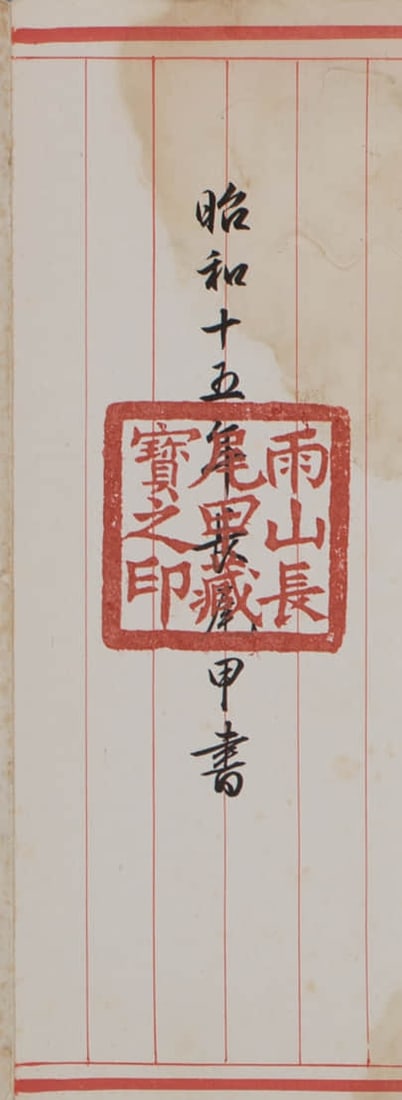 昭和十五年長尾甲書
雨山長
尾甲藏
寶之印